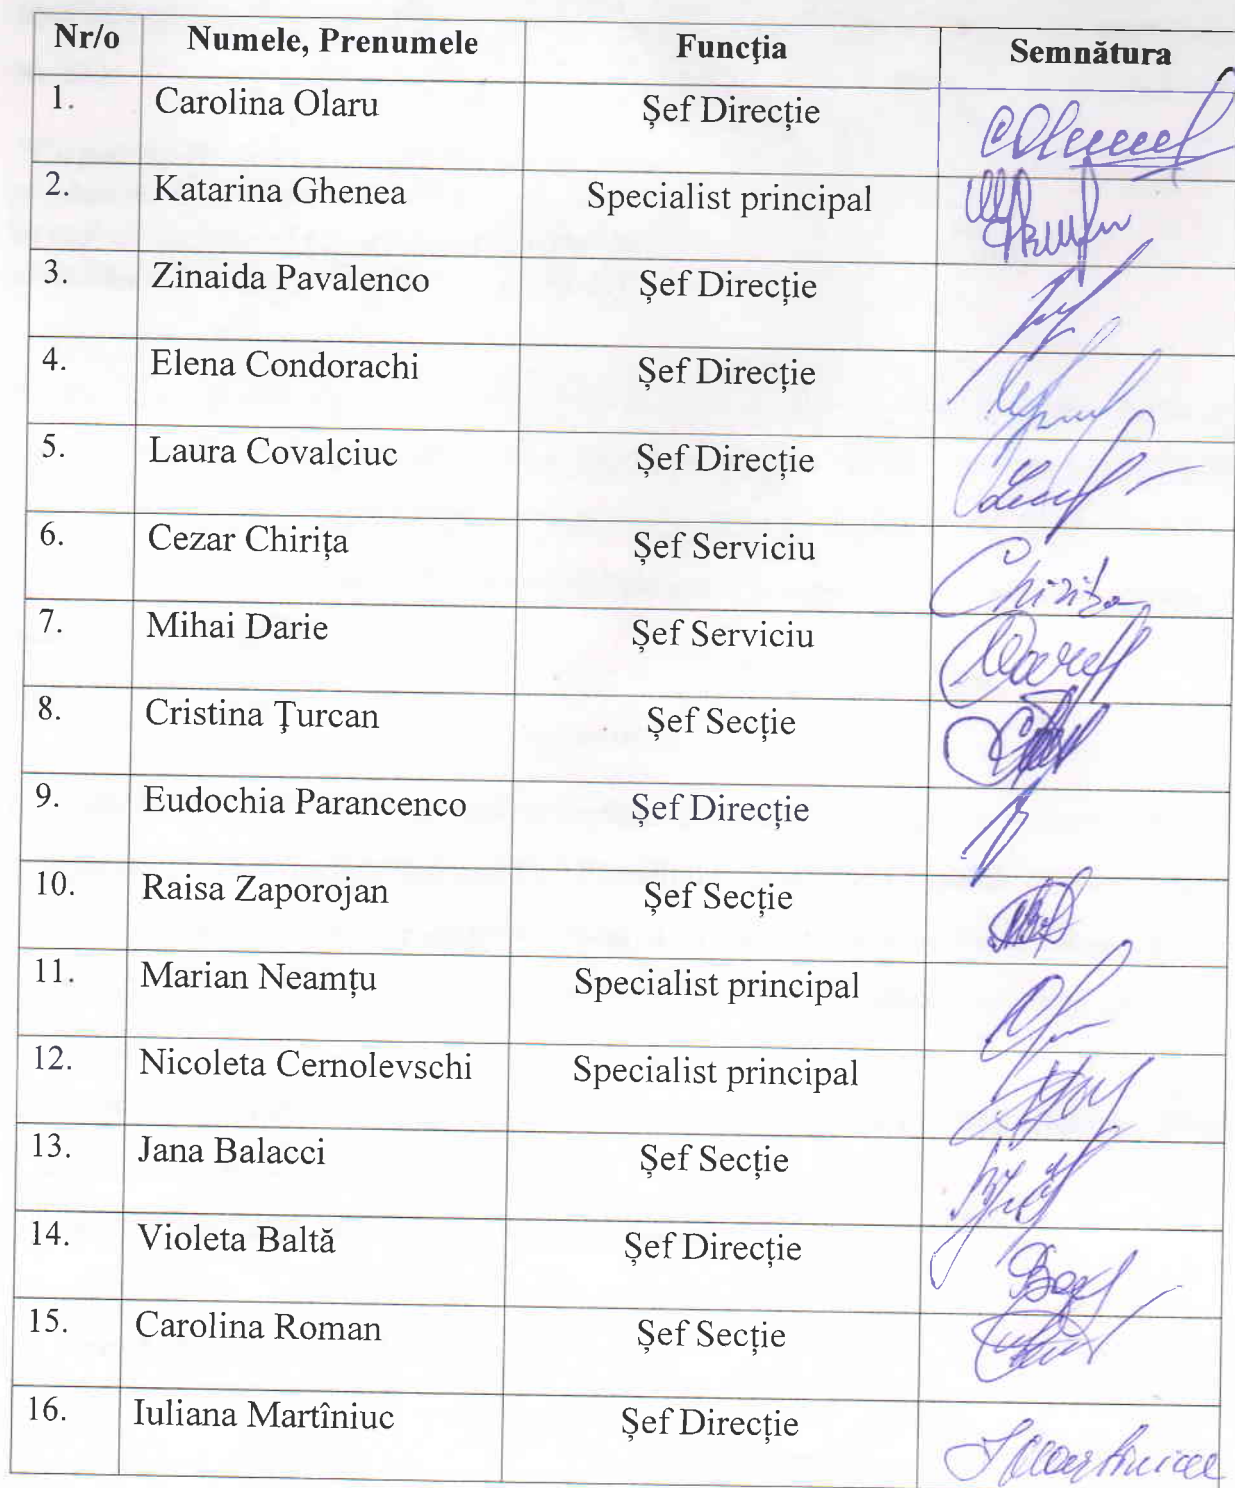 Nr/o Numele, Prenumele Funcţia Semnătura
1. Carolina Olaru Șef Direcție
2. Katarina Ghenea Specialist principal
3. Zinaida Pavalenco Șef Direcție
4. Elena Condorachi Șef Direcție
5. Laura Covalciuc Șef Direcție
6. Cezar Chirița Șef Serviciu Chirița
7. Mihai Darie Șef Serviciu
8. Cristina Ţurcan Șef Secție
9. Eudochia Parancenco Șef Direcție
10. Raisa Zaporojan Șef Secție
11. Marian Neamțu Specialist principal
12. Nicoleta Cernolevschi Specialist principal
13. Jana Balacci Șef Secție
14. Violeta Baltă Șef Direcție
15. Carolina Roman Șef Secție
16. Iuliana Martîniuc Șef Direcție